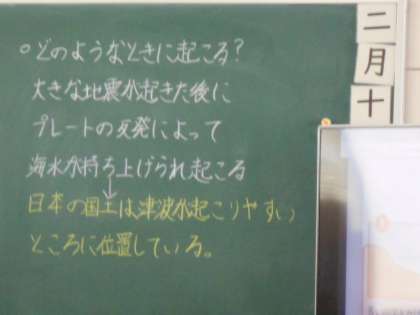 ○どのようなときに起こる?
大きな地震が起きた後に
プレートの反発によって
海水が持ち上げられ起こる
↓
日本の国土は津波が起こりやすい
ところに位置している。
二
月
十